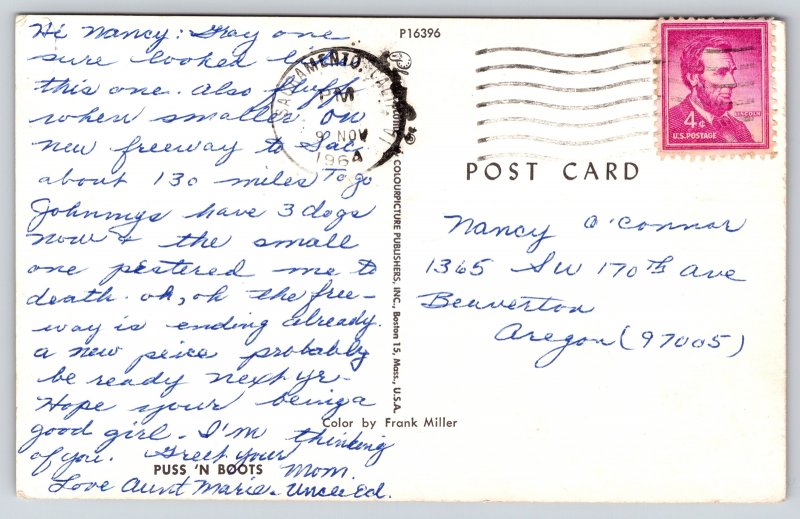 Hi Nancy: Gray one
sure looked like
this one. Also Fluffy
when smaller. On
new freeway to Sac.
about 130 miles To go
Johnnys have 3 dogs
now & the small
one pestered me to
death. oh, oh the free-
way is ending already.
a new peice probably
be ready next yr-
Hope your being a
good girl. I'm thinking
of you. Greet your
Mom.
Love Aunt Marie. Uncle Ed.
PUSS 'N BOOTS
P16396
SACRAMENTO, CALIF.
PM
9 NOV
1964
COLOURPICTURE PUBLISHERS, INC., Boston 15, Mass., U.S.A.
Color by Frank Miller
4¢
LINCOLN
U.S. POSTAGE
POST CARD
Nancy O'Connor
1365 SW 170th Ave
Beaverton
Oregon (97005)